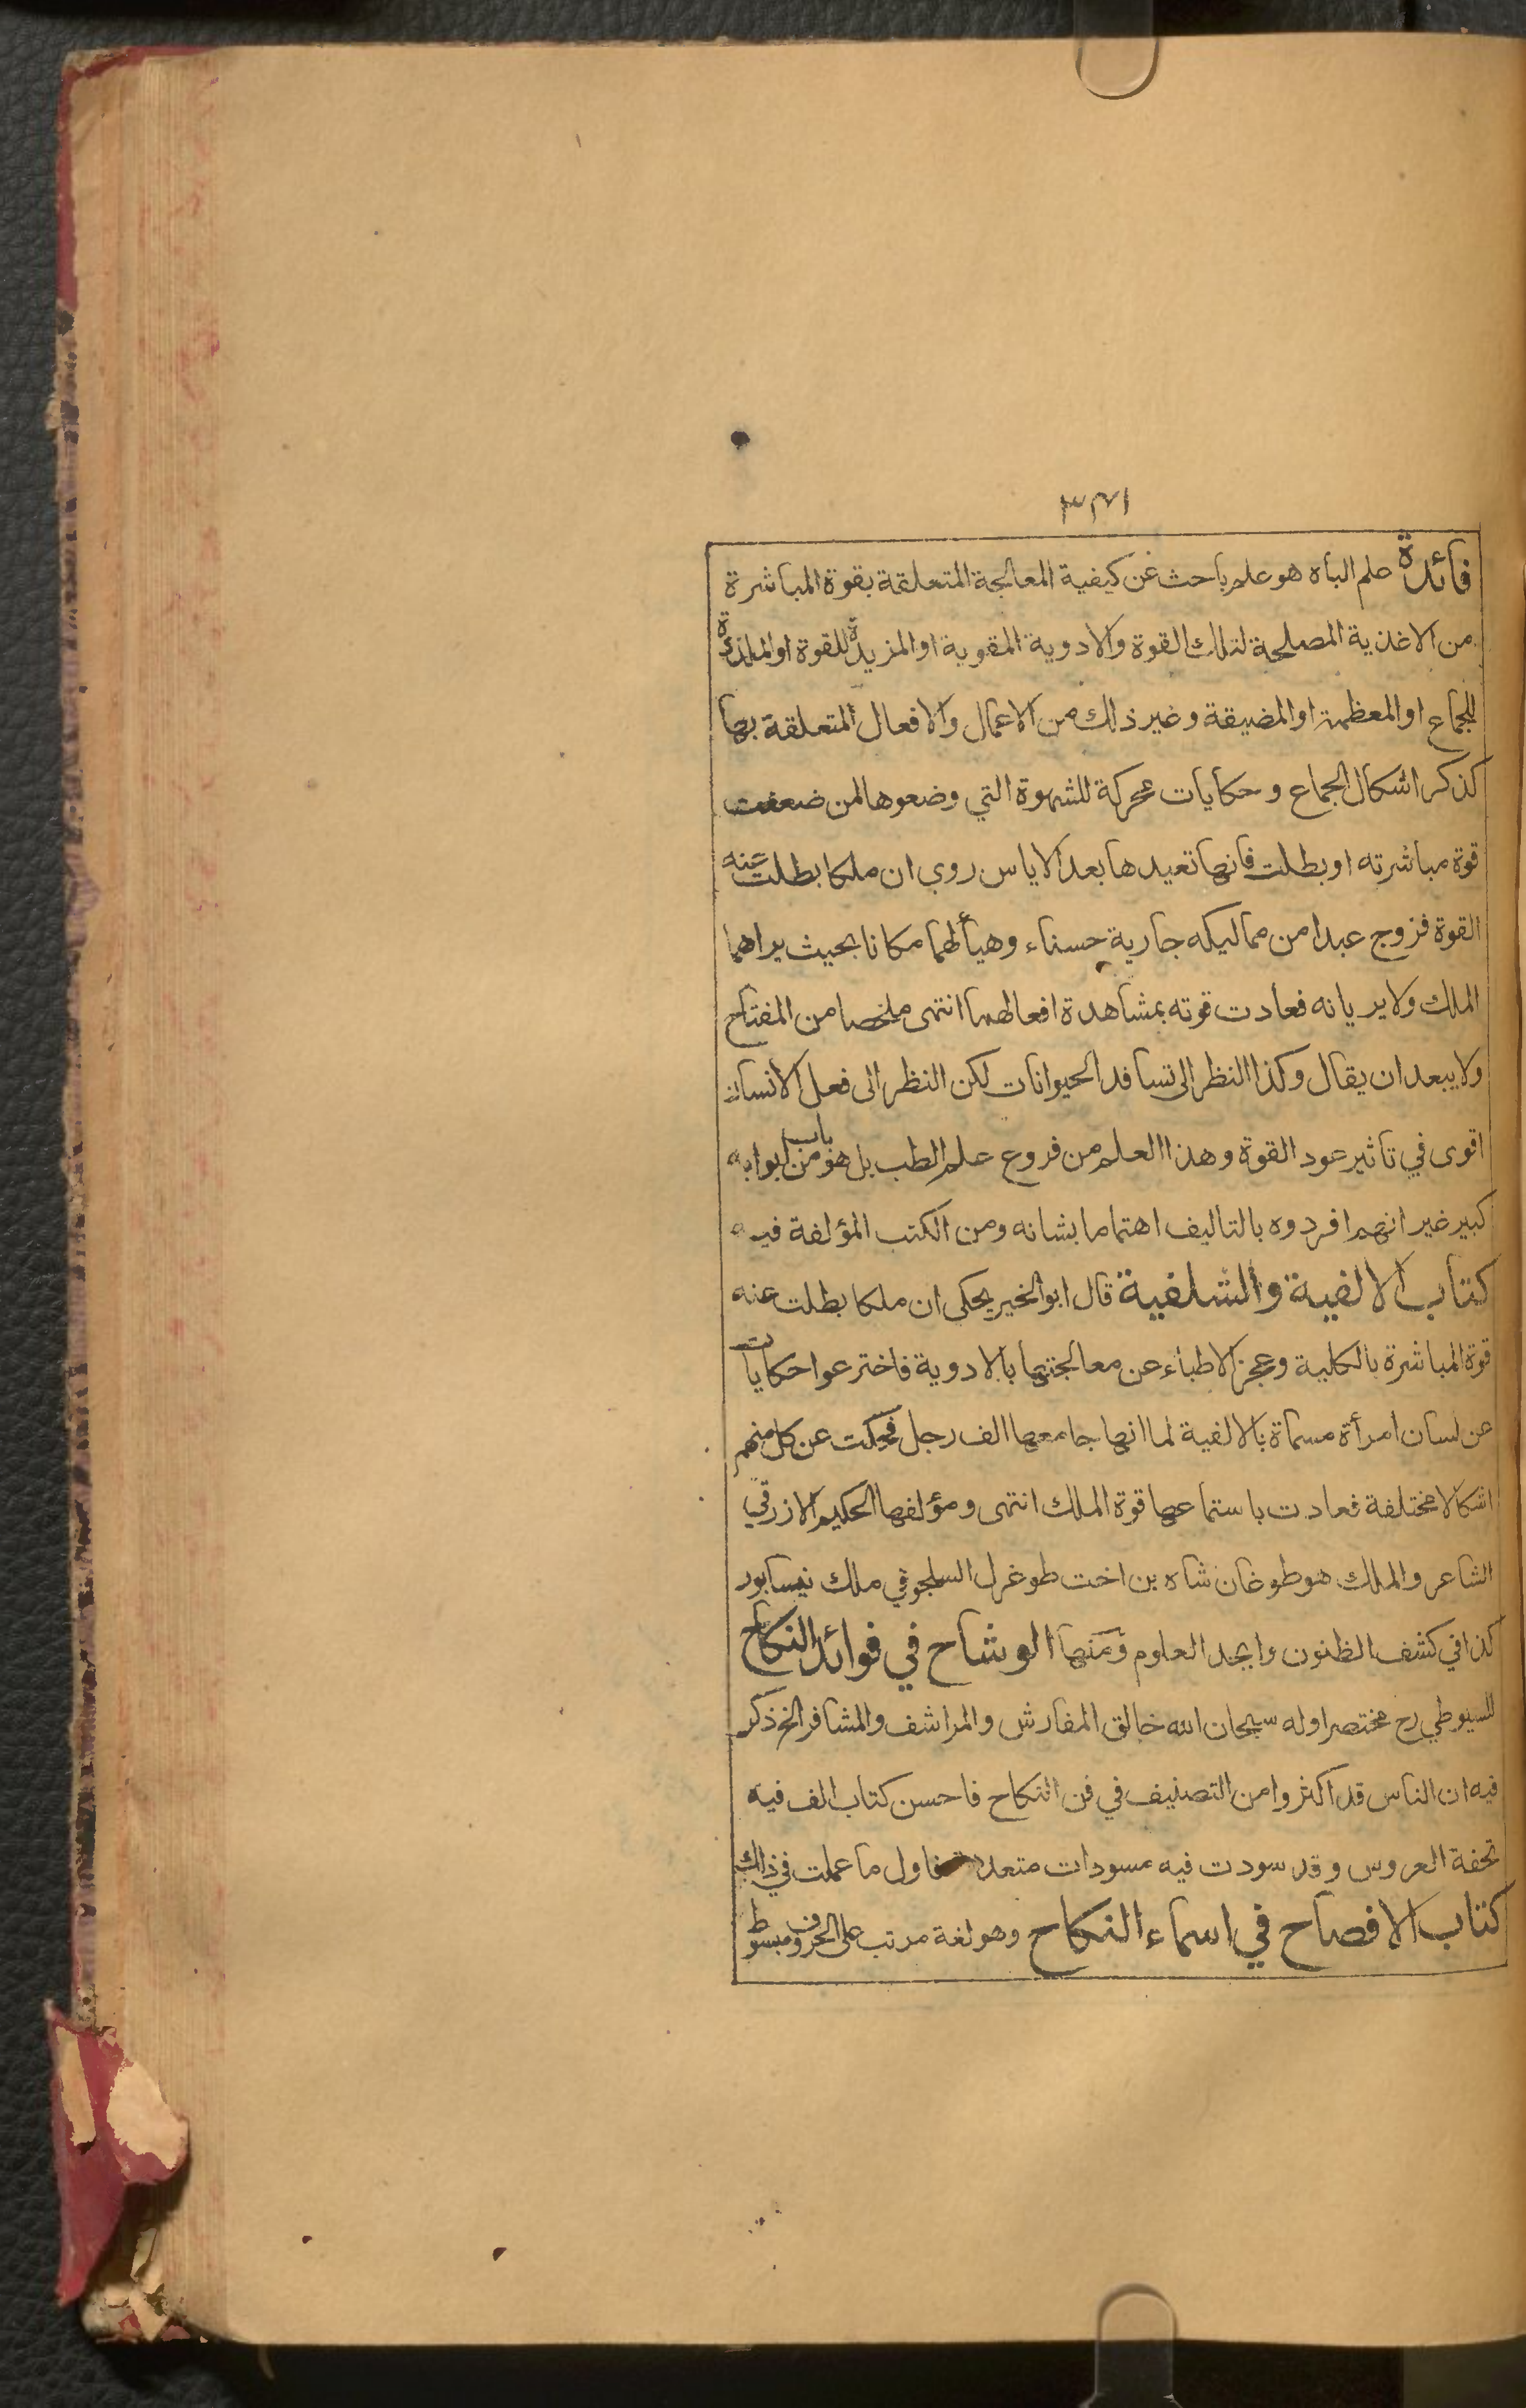 فائدة علم الباه هو علم باحث عن كيفية المعالجة المتعلقة بقوة المباشرة
من الاغذية المصلحة لتلك القوة والادوية المقوية او المزيدة للقوة او الملذذة
للجماع او المعظمة او المضيقة وغير ذلك من الاعمال والافعال المتعلقة بها
كذكر اشكال الجماع وحكايات محركة للشهوة التي وضعوها لمن ضعفت
قوة مباشرته او بطلت فانها تعيدها بعد الاياس روي ان ملكا بطلت عنه
القوة فزوج عبدا من مماليكه جارية حسناء وهيأ لهما مكانا بحيث يراهما
الملك ولا يريانه فعادت قوته بمشاهدة افعالهما انتهى ملخصا من المفتاح
ولا يبعد ان يقال وكذا النظر الى تسافد الحيوانات لكن النظر الى فعل الانسان
اقوى في تاثير عود القوة وهذا العلم من فروع علم الطب بل هو باب من ابوابه
كبير غير انهم افردوه بالتاليف اهتماما بشانه ومن الكتب المؤلفة فيه
كتاب الالفية والشلفية قال ابو الخير يحكى ان ملكا بطلت عنه
قوة المباشرة بالكلية وعجز الاطباء عن معالجتها بالادوية فاخترعوا حكايات
عن لسان امرأة مسماة بالالفية لما انها جامعها الف رجل فحكت عن كل منهم
اشكالا مختلفة فعادت باستماعها قوة الملك انتهى ومؤلفها الحكيم الازرقي
الشاعر والملك هو طوغان شاه بن اخت طوغرل السلجوقي ملك نيسابور
كذا في كشف الظنون وابجد العلوم ومنها الوشاح في فوائد النكاح
للسيوطي رح مختصر اوله سبحان الله خالق المفارش والمراشف والمشافر الخ ذكر
فيه ان الناس قد اكثروا من التصنيف في فن النكاح فاحسن كتاب الف فيه
تحفة العروس وقد سودت فيه مسودات متعددة فاول ما عملت في ذلك
كتاب الافصاح في اسماء النكاح وهو لغة مرتب على الحروف مبسوط